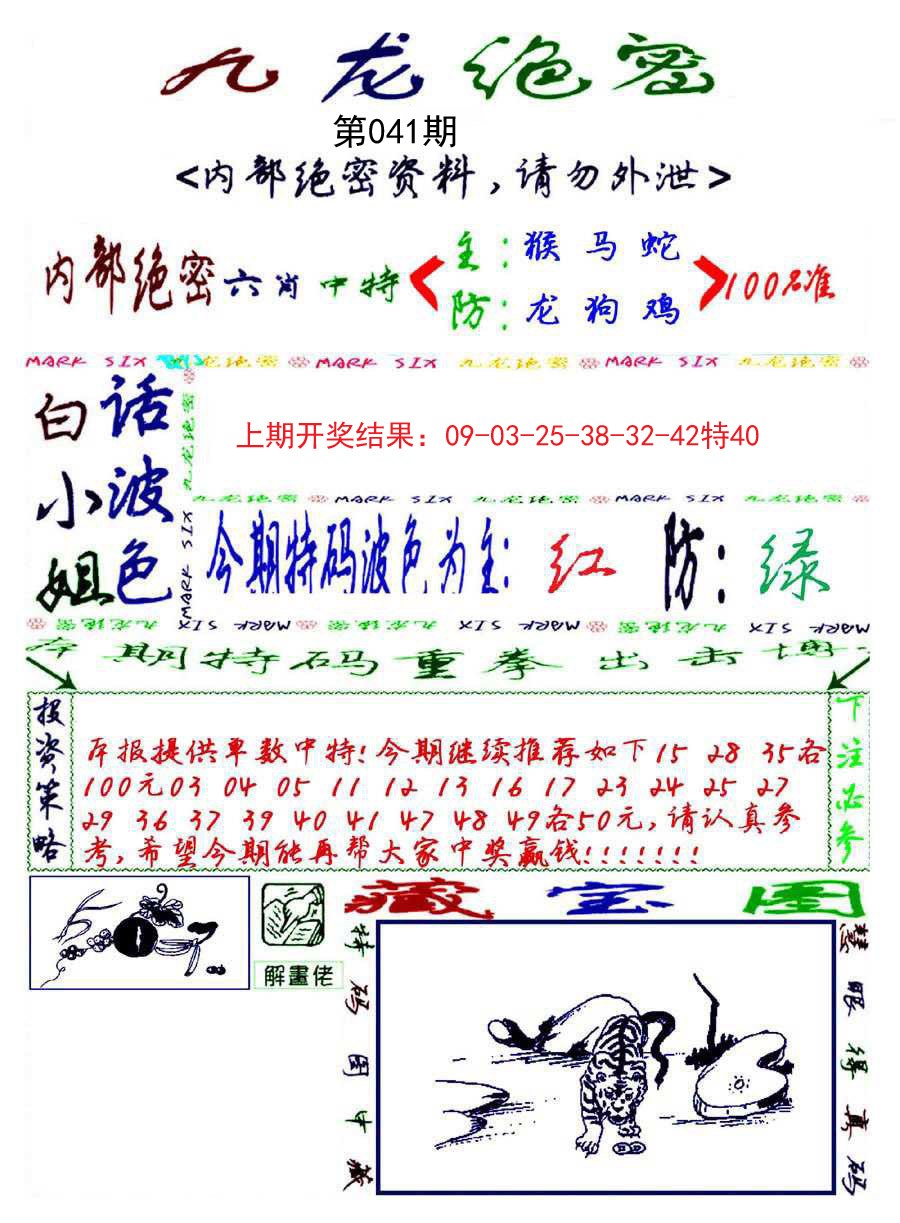 九龙绝密
第041期
<内部绝密资料,请勿外泄>
内部绝密六肖中特
主:猴马蛇
防:龙狗鸡
100%准
MARK SIX 九龙绝密 MARK SIX 九龙绝密 MARK SIX 九龙绝密
白小姐
话波色
九龙绝密
MARK SIX
上期开奖结果：09-03-25-38-32-42特40
九龙绝密 MARK SIX 九龙绝密 MARK SIX 九龙绝密
今期特码波色为主:红 防:绿
九龙绝密 MARK SIX 九龙绝密 MARK SIX 九龙绝密 MARK SIX
本期特码重拳出击博
投资策略
本报提供单数中特!今期继续推荐如下15 28 35各
100元03 04 05 11 12 13 16 17 23 24 25 27
29 36 37 39 40 41 47 48 49各50元,请认真参
考,希望今期能再帮大家中奖赢钱!!!!!!!
下注必参
解畫佬
藏宝图
特码图中藏
慧眼得真码